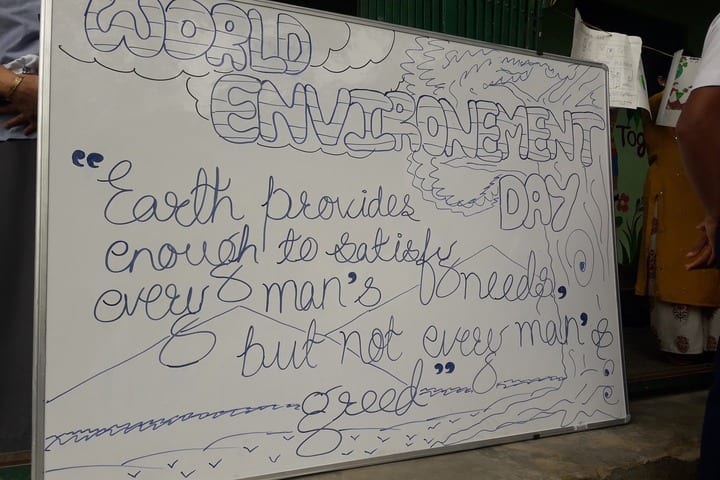 WORLD
ENVIRONEMENT
DAY
"Earth provides
enough to satisfy
every man's needs,
but not every man's
greed"
Tog